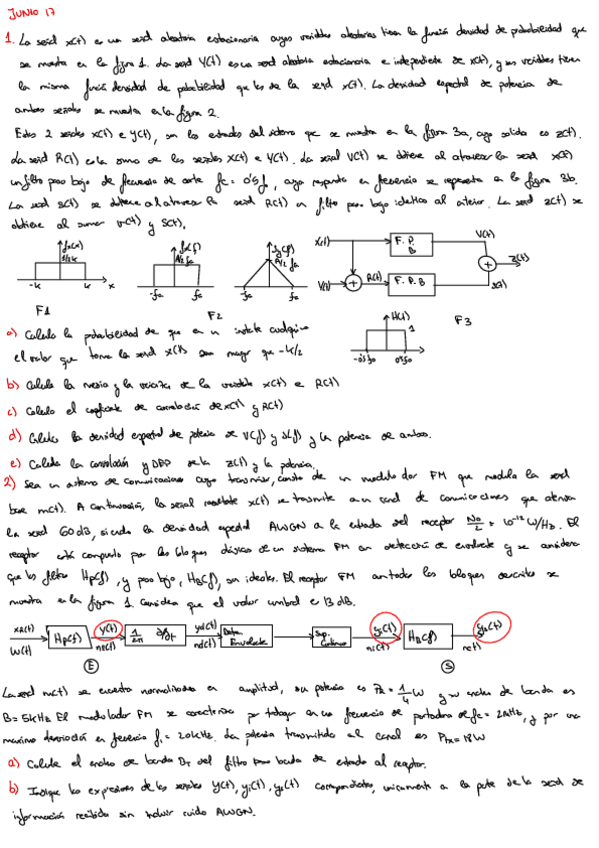 JUNIO 17
1. La señal x(t) es una señal aleatoria estacionaria cuyas variables aleatorias tienen la función densidad de probabilidad que
se muestra en la figura 1. La señal Y(t) es una señal aleatoria estacionaria e independiente de x(t), y sus variables tienen
la misma función densidad de probabilidad que las de la señal x(t). La densidad espectral de potencia de
ambas señales se muestra en la figura 2.
Estas 2 señales x(t) e Y(t), son las entradas del sistema que se muestra en la figura 3a, cuya salida es z(t).
La señal R(t) es la suma de las señales X(t) e Y(t). La señal V(t) se obtiene al atravesar la señal x(t)
un filtro paso bajo de frecuencia de corte fc = 0'5 fo, cuya respuesta en frecuencia se representa en la figura 3b.
La señal S(t) se obtiene al atravesar la señal R(t) un filtro paso bajo idéntico al anterior. La señal z(t) se
obtiene al sumar v(t) y S(t).
fx(x)
1/2k
-k k x
F1
-fo fo
-fo fo
F2
X(t)
F. P. B
V(t)
Z(t)
R(t)
F. P. B
S(t)
H(f)
1
-0'5fo 0'5fo
F3
a) Calcula la probabilidad de que en un instante cualquiera
el valor que tome la señal x(t) sea mayor que -k/2
b) Calcula la media y la varianza de la variable x(t) e R(t)
c) Calcula el coeficiente de correlación de x(t) y R(t)
d) Calcula la densidad espectral de potencia de V(f) y S(f) y la potencia de ambas.
e) Calcula la correlación y DEP de la Z(t) y la potencia.
2) Sea un sistema de comunicaciones cuyo transmisor, consta de un modulador FM que modula la señal
base m(t). A continuación, la señal resultante x(t) se transmite a un canal de comunicaciones que atenúa
la señal 60 dB, siendo la densidad espectral AWGN a la entrada del receptor No/2 = 10⁻¹² W/Hz. El
receptor está compuesto por los bloques clásicos de un sistema FM con detección de envolvente y se considera
que los filtros Hp(f), y paso bajo, HB(f), son ideales. El receptor FM con todos los bloques descritos se
muestra en la figura 1. Considera que el valor umbral es 13 dB.
W(t)
Hp(f)
y(t)
1/2π ∂/∂t
yd(t)
nd(t)
Detec. Envolvente
Sup. Continua
yi(t)
ni(t)
HB(f)
n(t)
E
S
La señal m(t) se encuentra normalizada en amplitud, su potencia es = 1/4 W y su ancho de banda es
B = 5kHz. El modulador FM se caracteriza por trabajar en una frecuencia de portadora de fc = 2MHz, y por una
máxima desviación en frecuencia = 20kHz. La potencia transmitida al canal es PTx = 18W
a) Calcule el ancho de banda BT del filtro paso banda de entrada al receptor.
b) Indique las expresiones de las señales y(t), yi(t), correspondientes, únicamente a la parte de la señal de
información recibida sin incluir ruido AWGN.